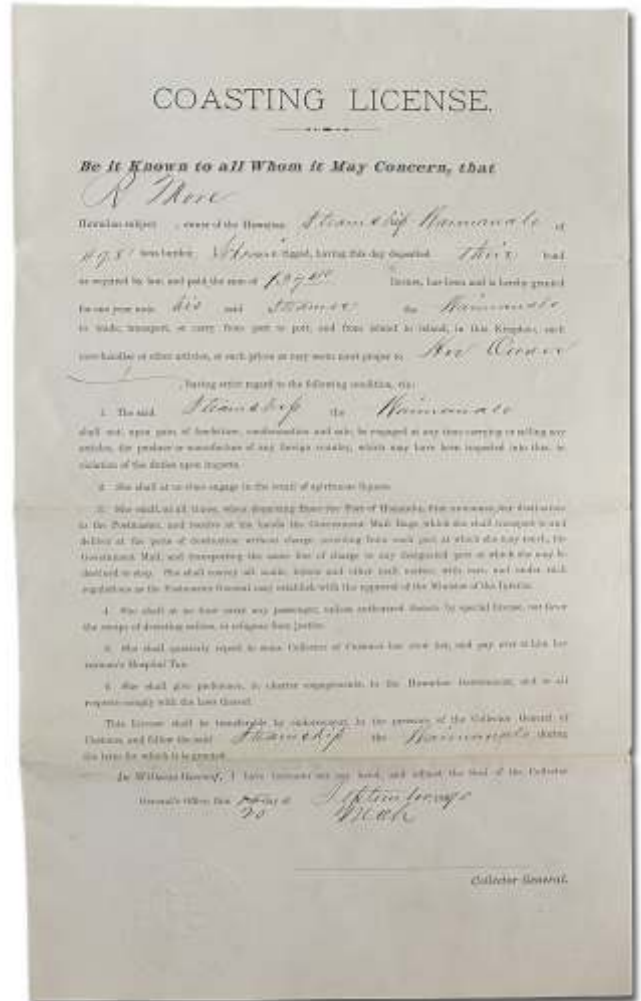 COASTING LICENSE.
Be it Known to all Whom it May Concern, that
R More
Hawaiian subject , owner of the Hawaiian Steamship Waimanalo of
tons burden, rigged, having this day deposited Their bond
as required by law, and paid the sum of license, has been and is hereby granted
for one year unto his said Steamer the Waimanalo
to trade, transport, or carry from port to port, and from island to island, in this Kingdom, such
merchandise or other articles, at such prices as may seem most proper to Her Owner
, having strict regard to the following condition, viz:
1. The said Steamship the Waimanalo
shall not, upon pain of forfeiture, condemnation and sale, be engaged at any time carrying or selling any
articles, the produce or manufacture of any foreign country, which may have been imported into this, in
violation of the duties upon imports.
2. She shall at no time engage in the retail of spirituous liquors.
3. She shall, at all times, when departing from the Port of Honolulu, first announce her destination
to the Postmaster, and receive at his hands the Government Mail Bags, which she shall transport to and
deliver at the ports of destination without charge, receiving from each port at which she may touch, the
Government Mail, and transporting the same free of charge to any designated port at which she may be
destined to stop. She shall convey all mails, letters and other mail matter, with care, and under such
regulations as the Postmaster General may establish with the approval of the Minister of the Interior.
4. She shall at no time carry any passenger, unless authorized thereto by special license, nor favor
the escape of deserting sailors, or refugees from justice.
5. She shall quarterly report to some Collector of Customs her crew list, and pay over to him her
seamen's Hospital Tax.
6. She shall give preference, in charter engagements, to the Hawaiian Government, and in all
respects comply with the laws thereof.
This License shall be transferable by endorsement, in the presence of the Collector General of
Customs, and follow the said Steamship the Waimanalo during
the term for which it is granted.
In Witness Whereof, I have hereunto set my hand, and affixed the Seal of the Collector
General's Office, this day of
20
Collector General.